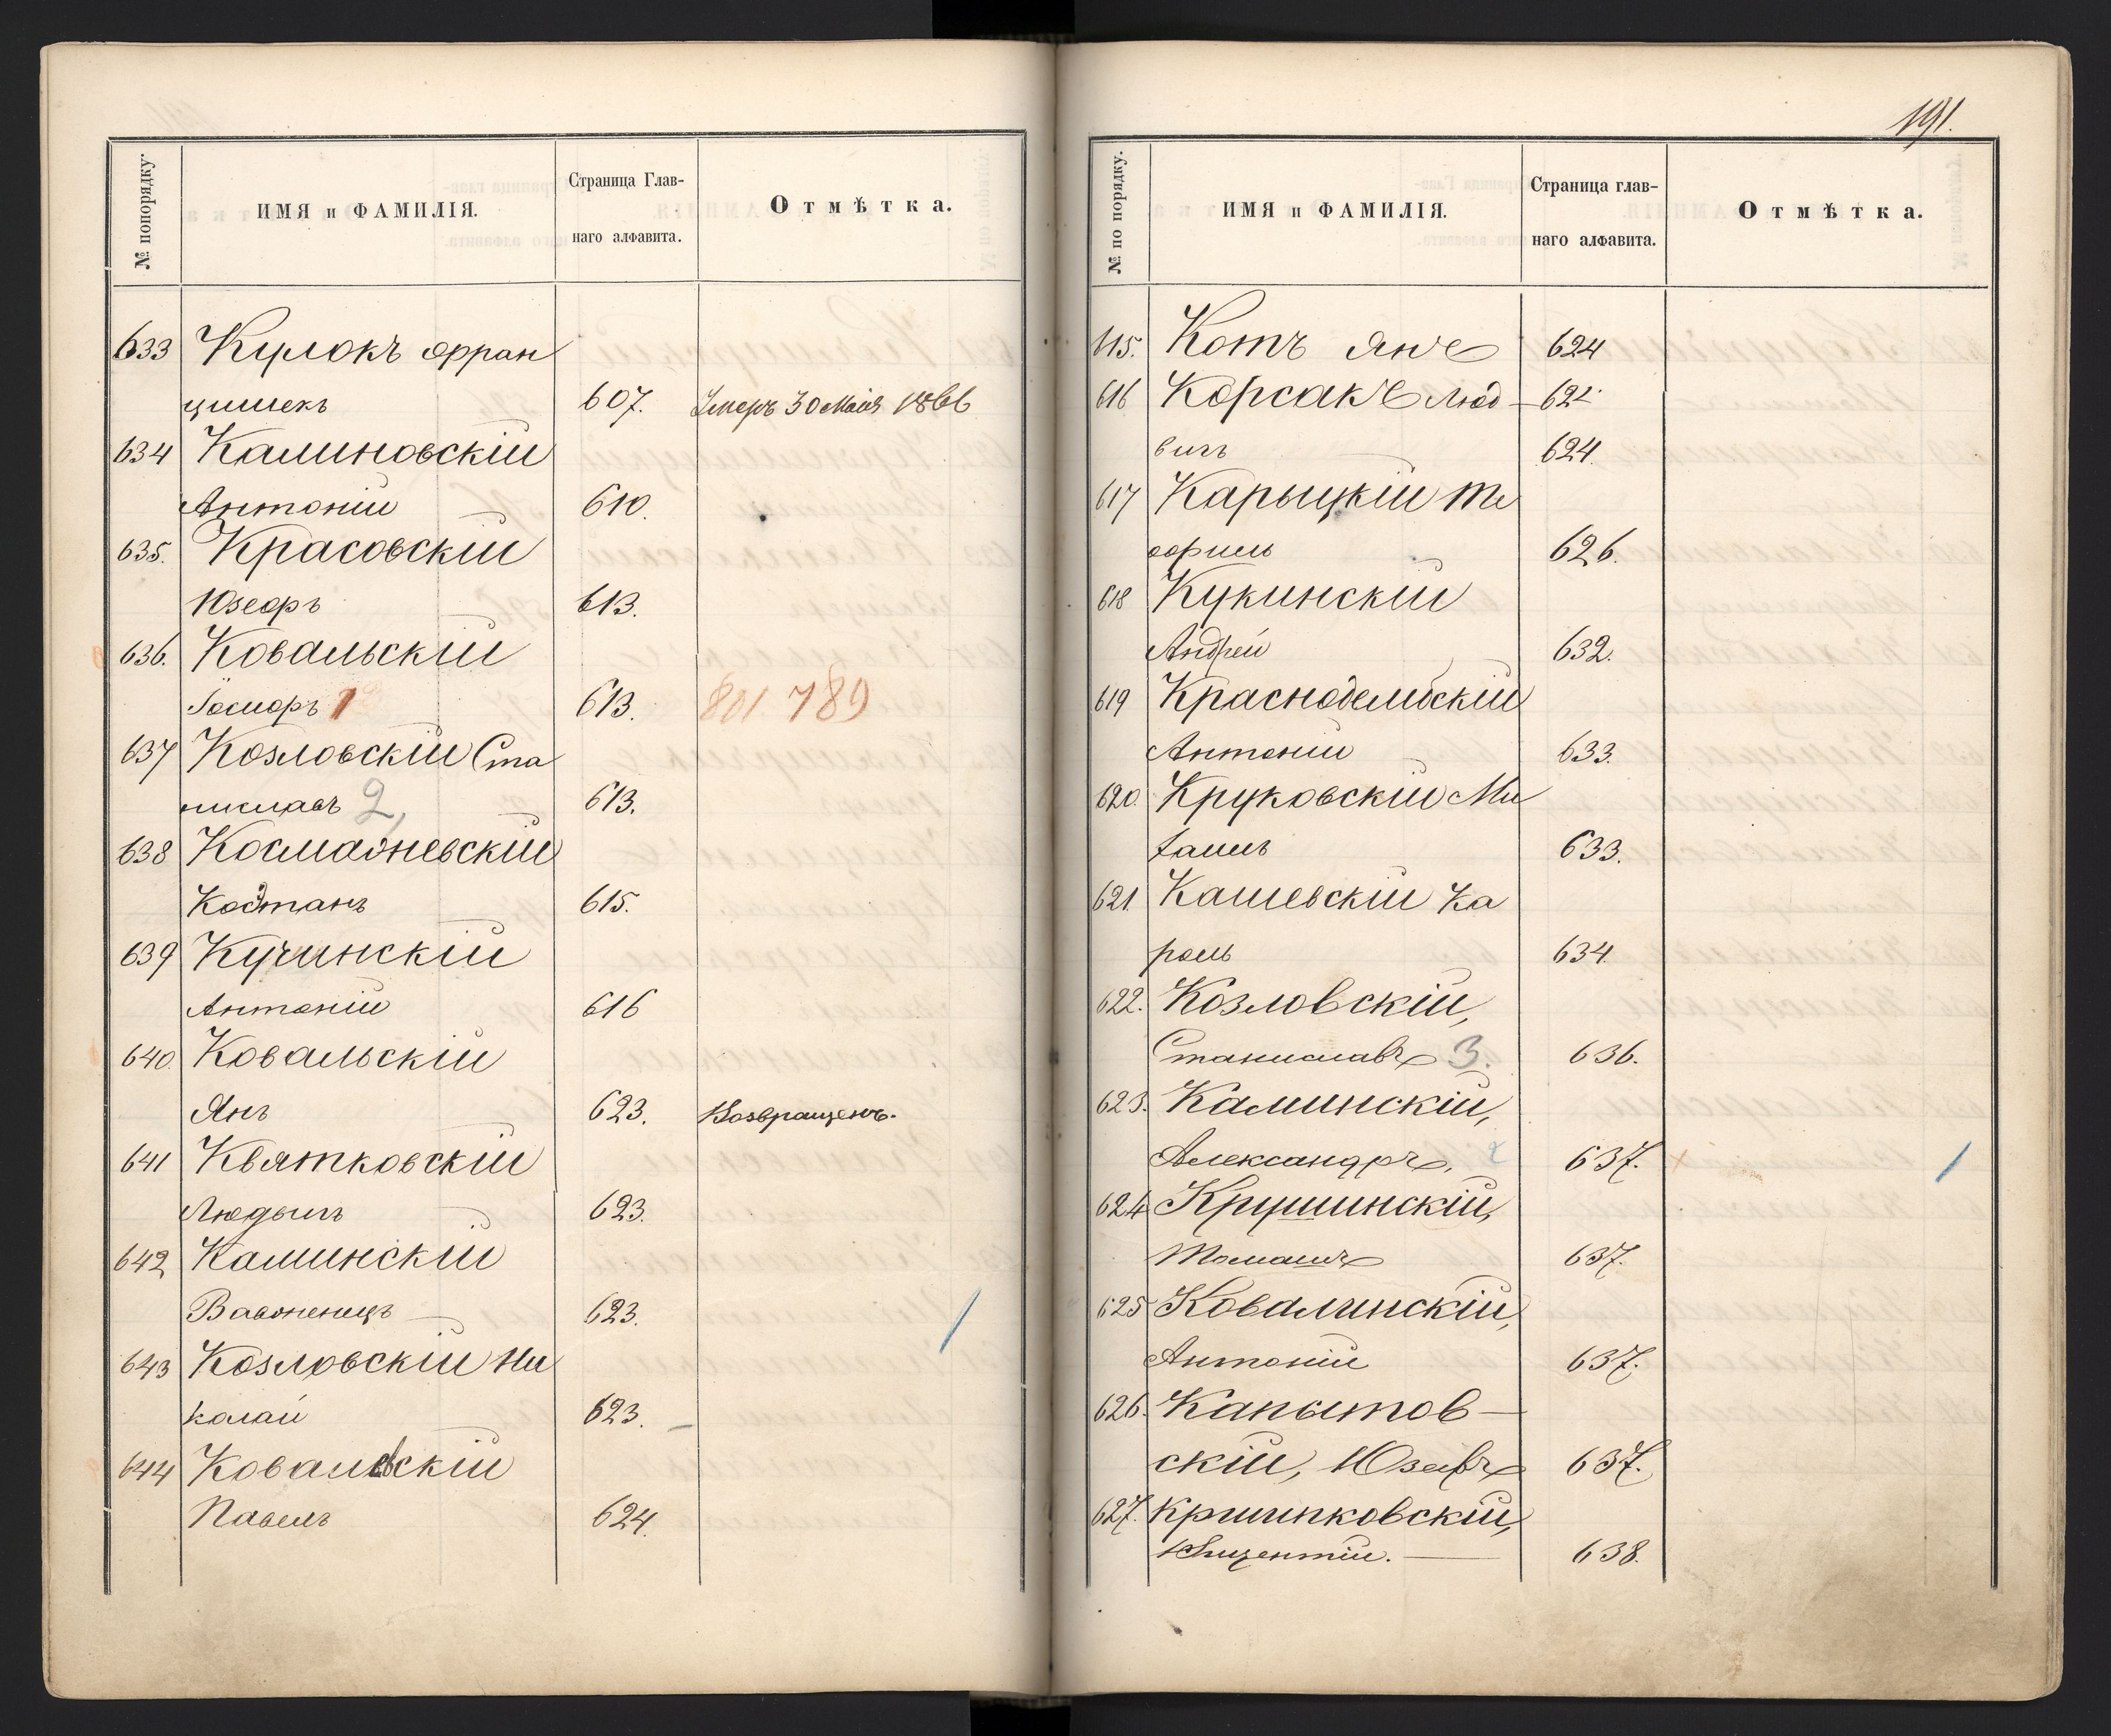 № попорядку.
ИМЯ и ФАМИЛІЯ.
Страница Глав-
наго алфавита.
Отмѣтка.
633 Кулокъ Фран
цишекъ 607. Умеръ 30 Мая 1866
634 Калиновскій
Антоній 610.
635. Красовскій
Юзефъ 613.
636. Ковальскій
Іосифъ 1 613. 801 789
637 Козловскій Ста
ниславъ 2, 613.
638
615.
639 Кучинскій
Антоній 616
640. Ковальскій
Янъ 623. Возвращенъ.
641 Квятковскій
Людвигъ 623.
642 Каминскій
623.
643 Козловскій Ни
колай 623.
644 Ковалевскій
Павелъ 624.
191.
№ по порядку.
ИМЯ и ФАМИЛІЯ.
Страница глав-
наго алфавита.
Отмѣтка.
615. Котъ Янъ 624
616 Корсакъ Люд-
вигъ 624.
617 Карыцкій Те
офиль 626.
618 Кукинскій
Андрей 632.
619
Антоній 633.
620. Круковскій Ми
халъ 633.
621. Кашевскій Ка
роль 634
622. Козловскій,
Станиславъ 3. 636.
623. Каминскій,
Александръ, 2 637.
624 Крушинскій,
Томашъ 637.
625 Ковалинскій,
Антоній 637.
626. Капытов-
скій, Юзефъ 637.
627.
Винцентій. 638.